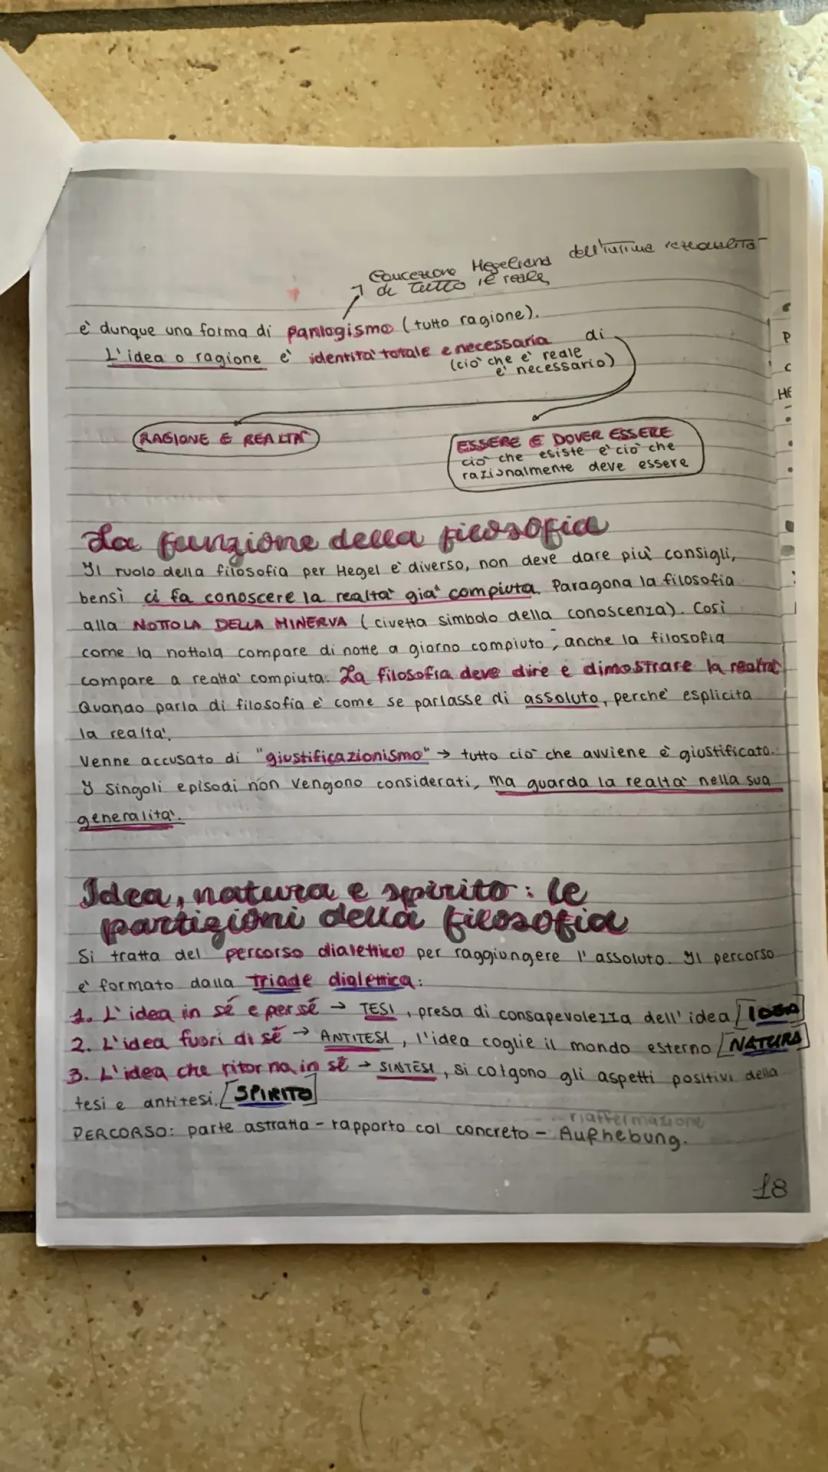 Concezione Hegeliana dell'intima razionalità
di tutto il reale
è dunque una forma di panlogismo (tutto ragione).
L'idea o ragione è identità totale e necessaria di
(ciò che è reale
è necessario)
RAGIONE E REALTÀ
ESSERE E DOVER ESSERE
ciò che esiste è ciò che
razionalmente deve essere
La funzione della filosofia
Il ruolo della filosofia per Hegel è diverso, non deve dare più consigli,
bensì ci fa conoscere la realtà già compiuta. Paragona la filosofia
alla NOTTOLA DELLA MINERVA (civetta simbolo della conoscenza). Così
come la nottola compare di notte a giorno compiuto, anche la filosofia
compare a realtà compiuta. La filosofia deve dire e dimostrare la realtà
Quando parla di filosofia è come se parlasse di assoluto, perchè esplicita
la realtà.
Venne accusato di "giustificazionismo" → tutto ciò che avviene è giustificato.
I singoli episodi non vengono considerati, ma guarda la realtà nella sua
generalità.
Idea, natura e spirito: le
partizioni della filosofia
Si tratta del percorso dialettico per raggiungere l'assoluto. Il percorso
è formato dalla Triade dialettica:
1. L'idea in sé e per sé → TESI, presa di consapevolezza dell'idea [IDEA]
2. L'idea fuori di sé → ANTITESI, l'idea coglie il mondo esterno [NATURA]
3. L'idea che ritorna in sé → SINTESI, si colgono gli aspetti positivi della
tesi e antitesi. [SPIRITO]
riaffermazione
PERCORSO: parte astratta - rapporto col concreto - Aufhebung.
18